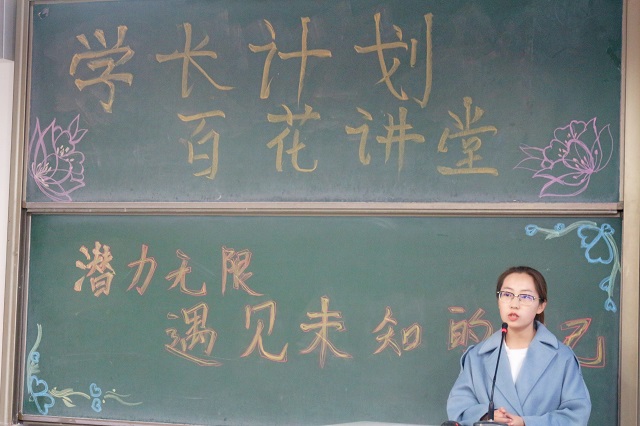 学长计划
百花讲堂
潜力无限
遇见未知的己